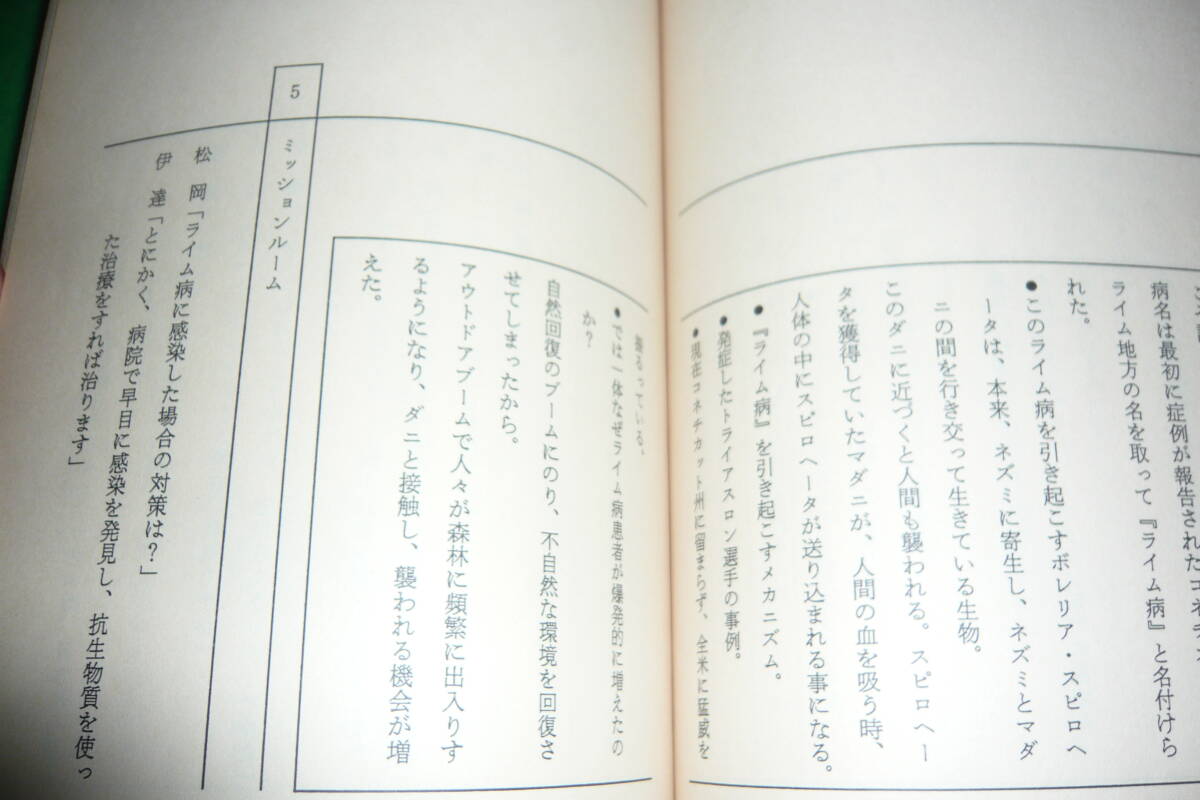 病名は最初に症例が報告されたコネチ
ライム地方の名を取って『ライム病』と名付けら
れた。
●このライム病を引き起こすボレリア・スピロヘ
ータは、本来、ネズミに寄生し、ネズミとマダ
ニの間を行き交って生きている生物。
このダニに近づくと人間も襲われる。スピロヘー
タを獲得していたマダニが、人間の血を吸う時、
人体の中にスピロヘータが送り込まれる事になる。
●『ライム病』を引き起こすメカニズム。
●発症したトライアスロン選手の事例。
●現在コネチカット州に留まらず、全米に猛威を
振るっている。
●では一体なぜライム病患者が爆発的に増えたの
か？
自然回復のブームにのり、不自然な環境を回復さ
せてしまったから。
アウトドアブームで人々が森林に頻繁に出入りす
るようになり、ダニと接触し、襲われる機会が増
えた。
5 ミッションルーム
松 岡「ライム病に感染した場合の対策は？」
伊 達「とにかく、病院で早目に感染を発見し、抗生物質を使っ
た治療をすれば治ります」